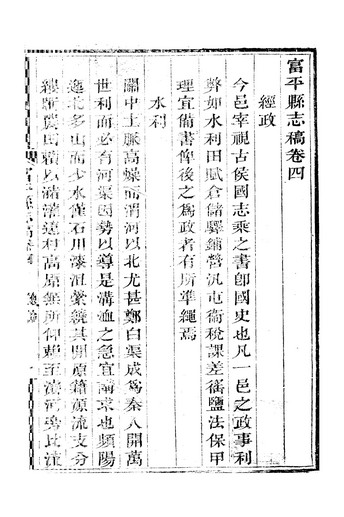 富平縣志稿卷四
經政
今邑宰視古侯國志乘之書卽國史也凡一邑之政事利
弊如水利田賦倉儲驛鋪營汛屯衞稅課差徭鹽法保甲
理宜備書俾後之爲政者有所準繩焉
水利
關中土脈高燥而渭河以北尤甚鄭白渠成爲秦人開萬
世利而必有河渠因勢以導是溝洫之急宜講求也頻陽
多山而少水僅石川漆沮縈繞其間頻流支分
農田賴以灌溉遠村高原無所仰